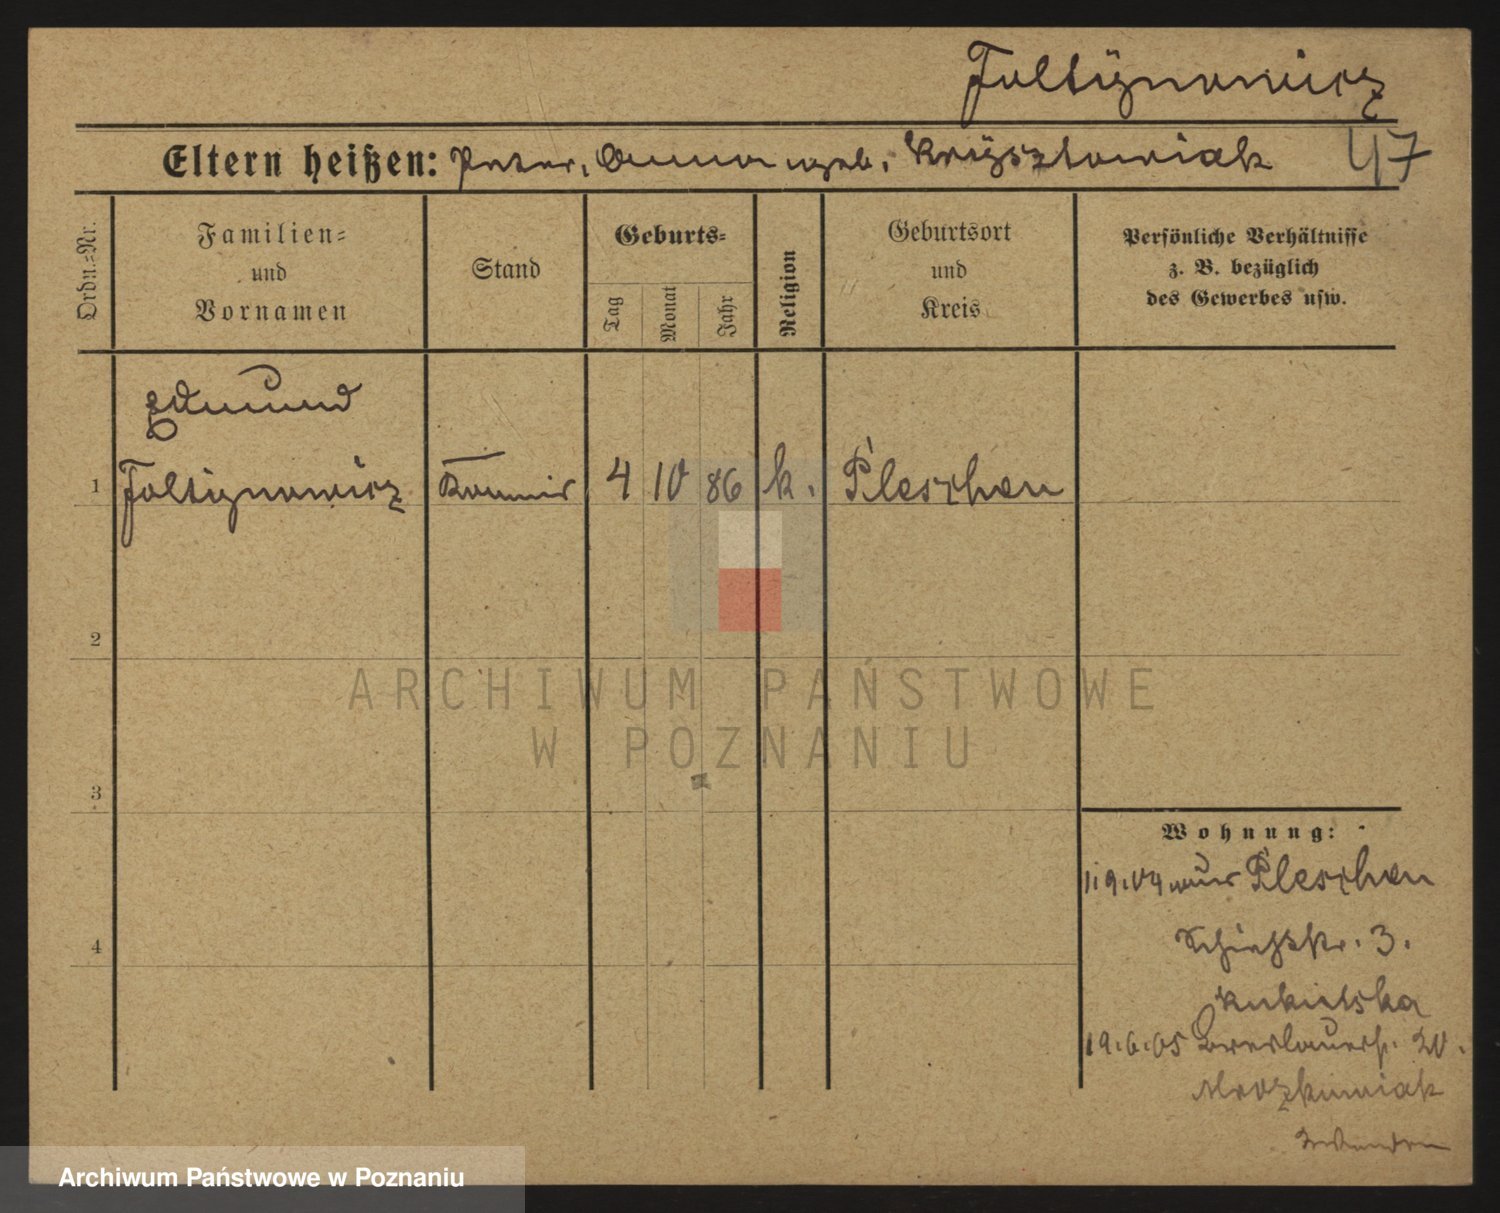 Foltÿnowicz
Eltern heißen: Peter, Anna geb. Krÿsztowiak 47
Ordn.=Nr.
Familien=
und
Vornamen
Stand
Geburts=
Tag
Monat
Jahr
Religion
Geburtsort
und
Kreis
Persönliche Verhältnisse
z. B. bezüglich
des Gewerbes usw.
Edmund
1 Foltynowicz Kommis 4 10 86 k. Pleschen
2
ARCHIWUM PAŃSTWOWE
W POZNANIU
3
Wohnung:
1.9.04 aus Pleschen
4
Schießstr. 3.
19.6.05 Breslauerstr. 20.
Archiwum Państwowe w Poznaniu